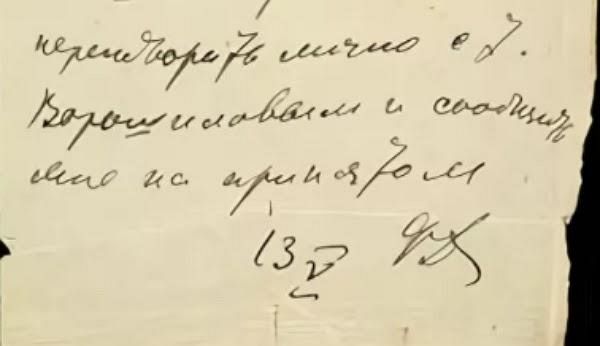 переговорить лично с т.
Ворошиловым и сообщить
мне на принятом
13 V ФД